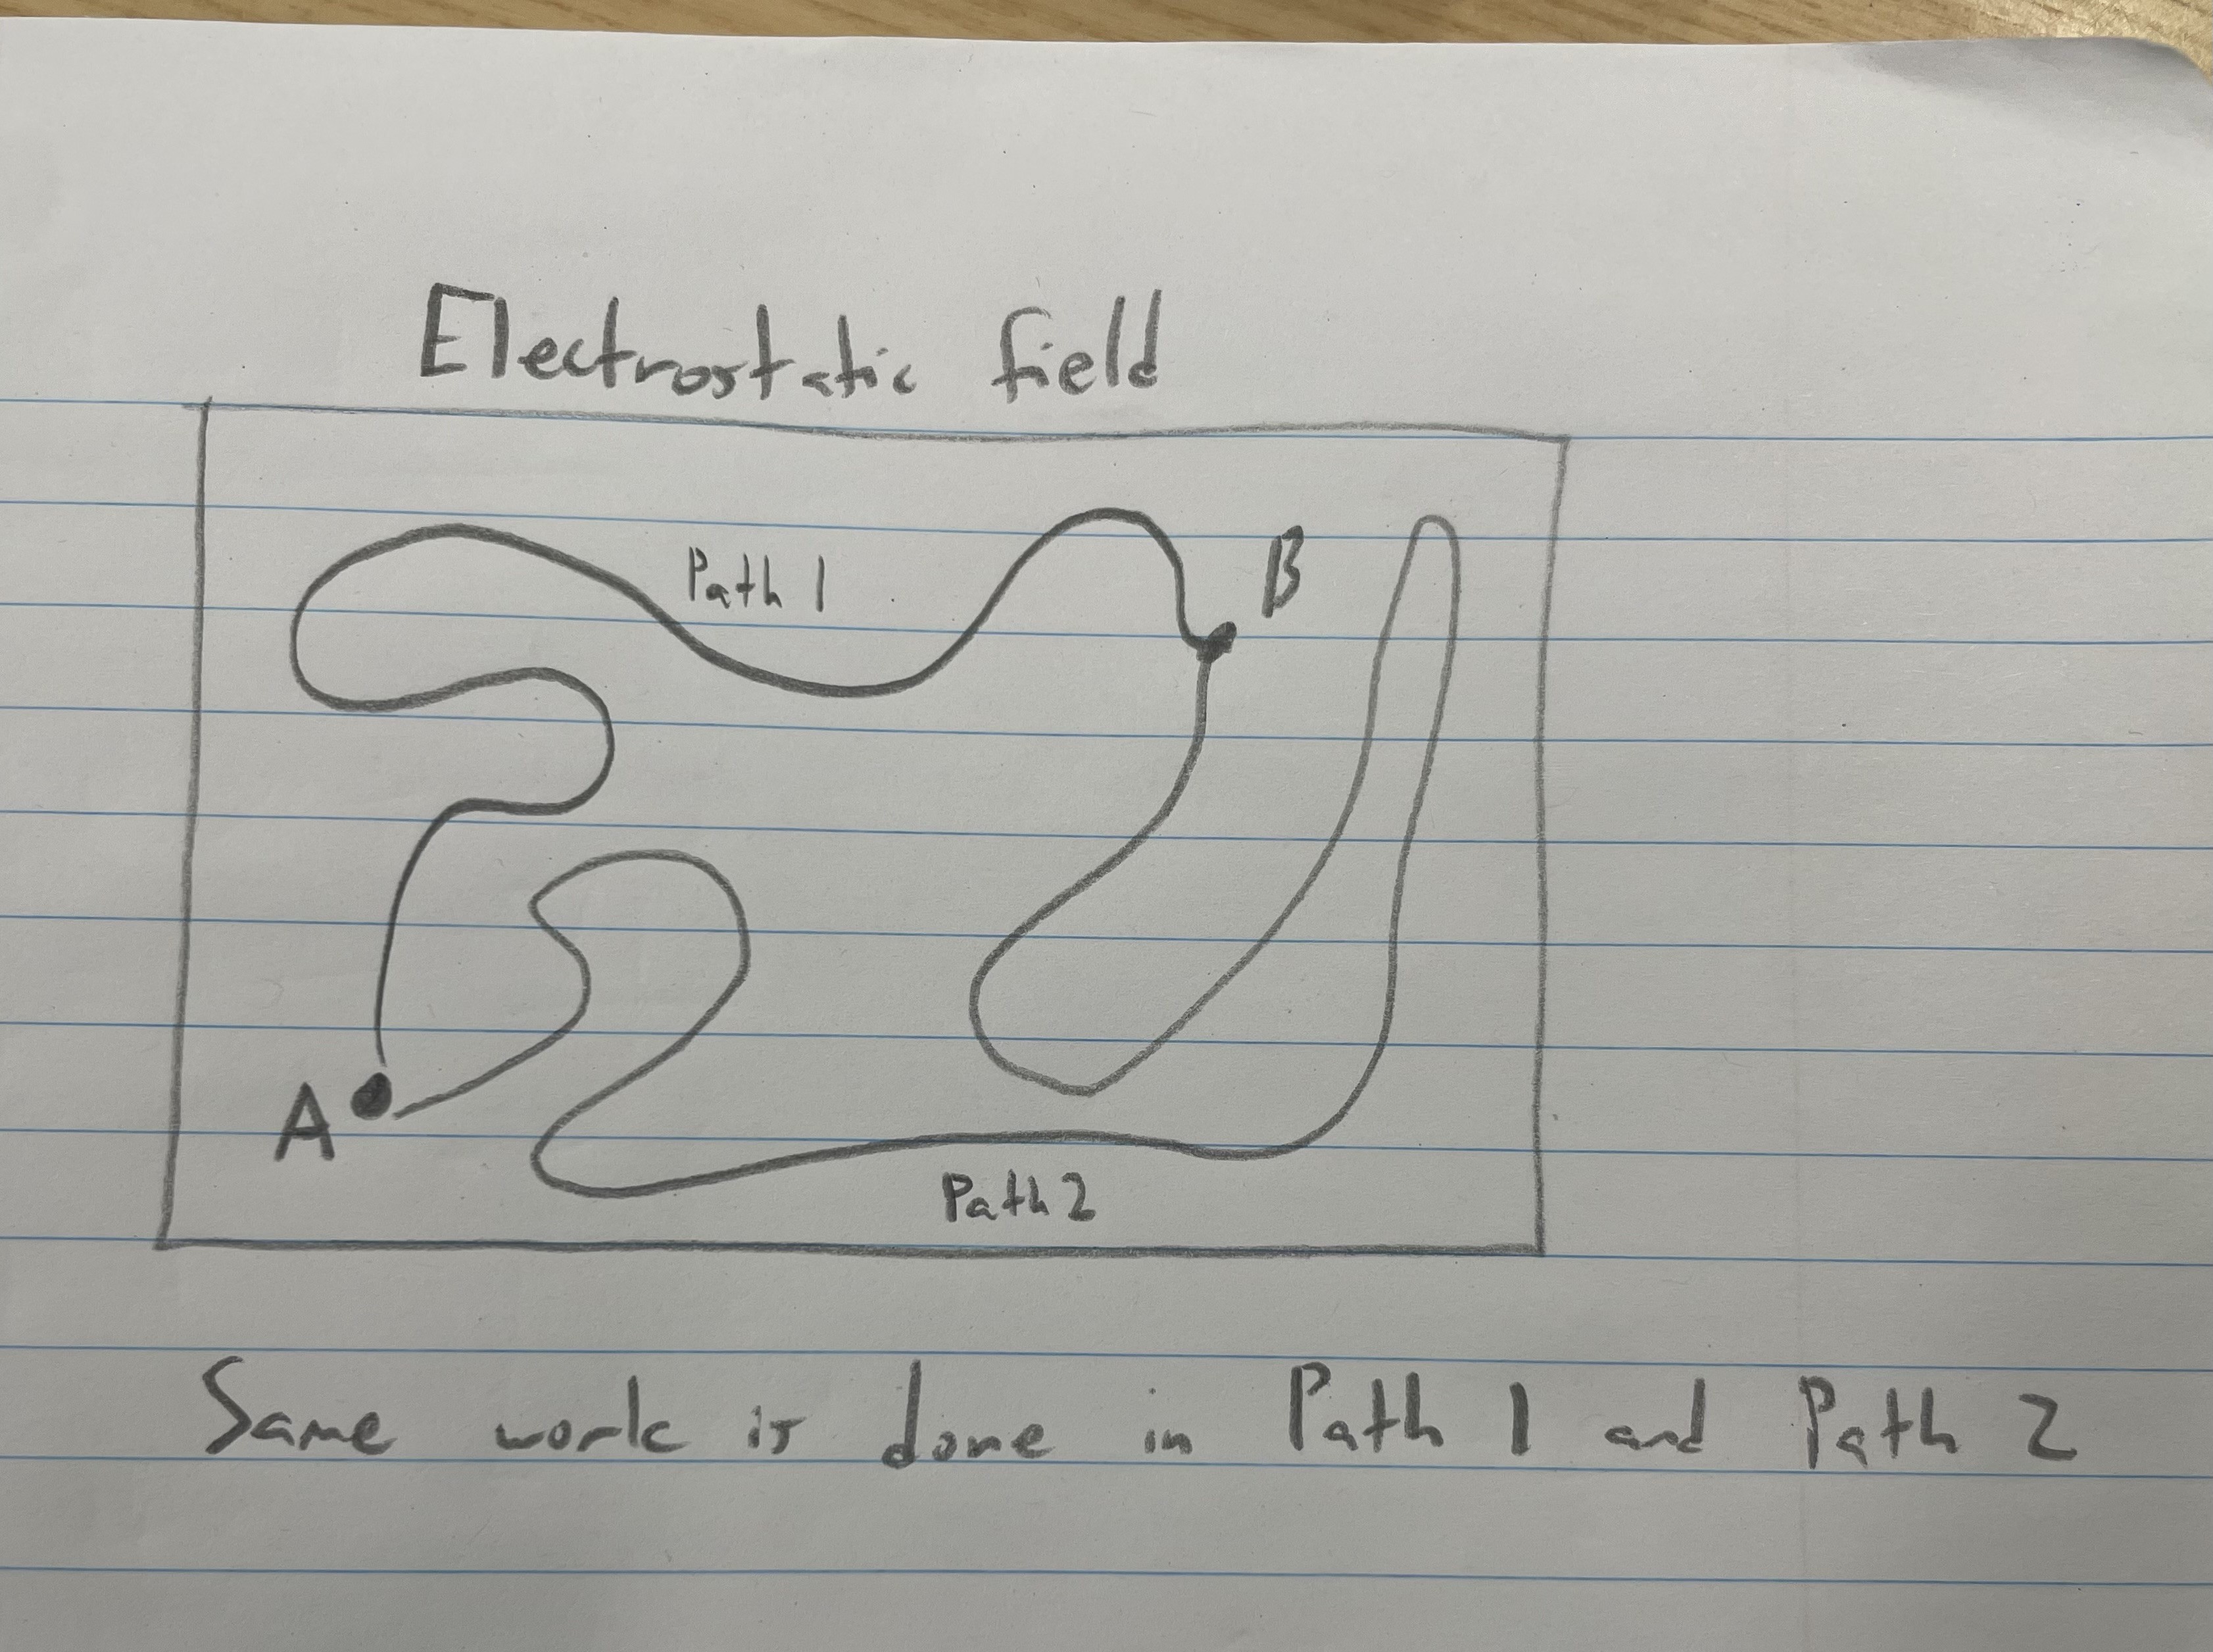 Electrostatic field
Path 1
B
A
Path 2
Same work is done in Path 1 and Path 2